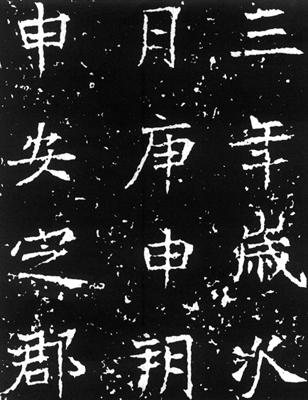 三年歲次
月庚申朔
申安定郡